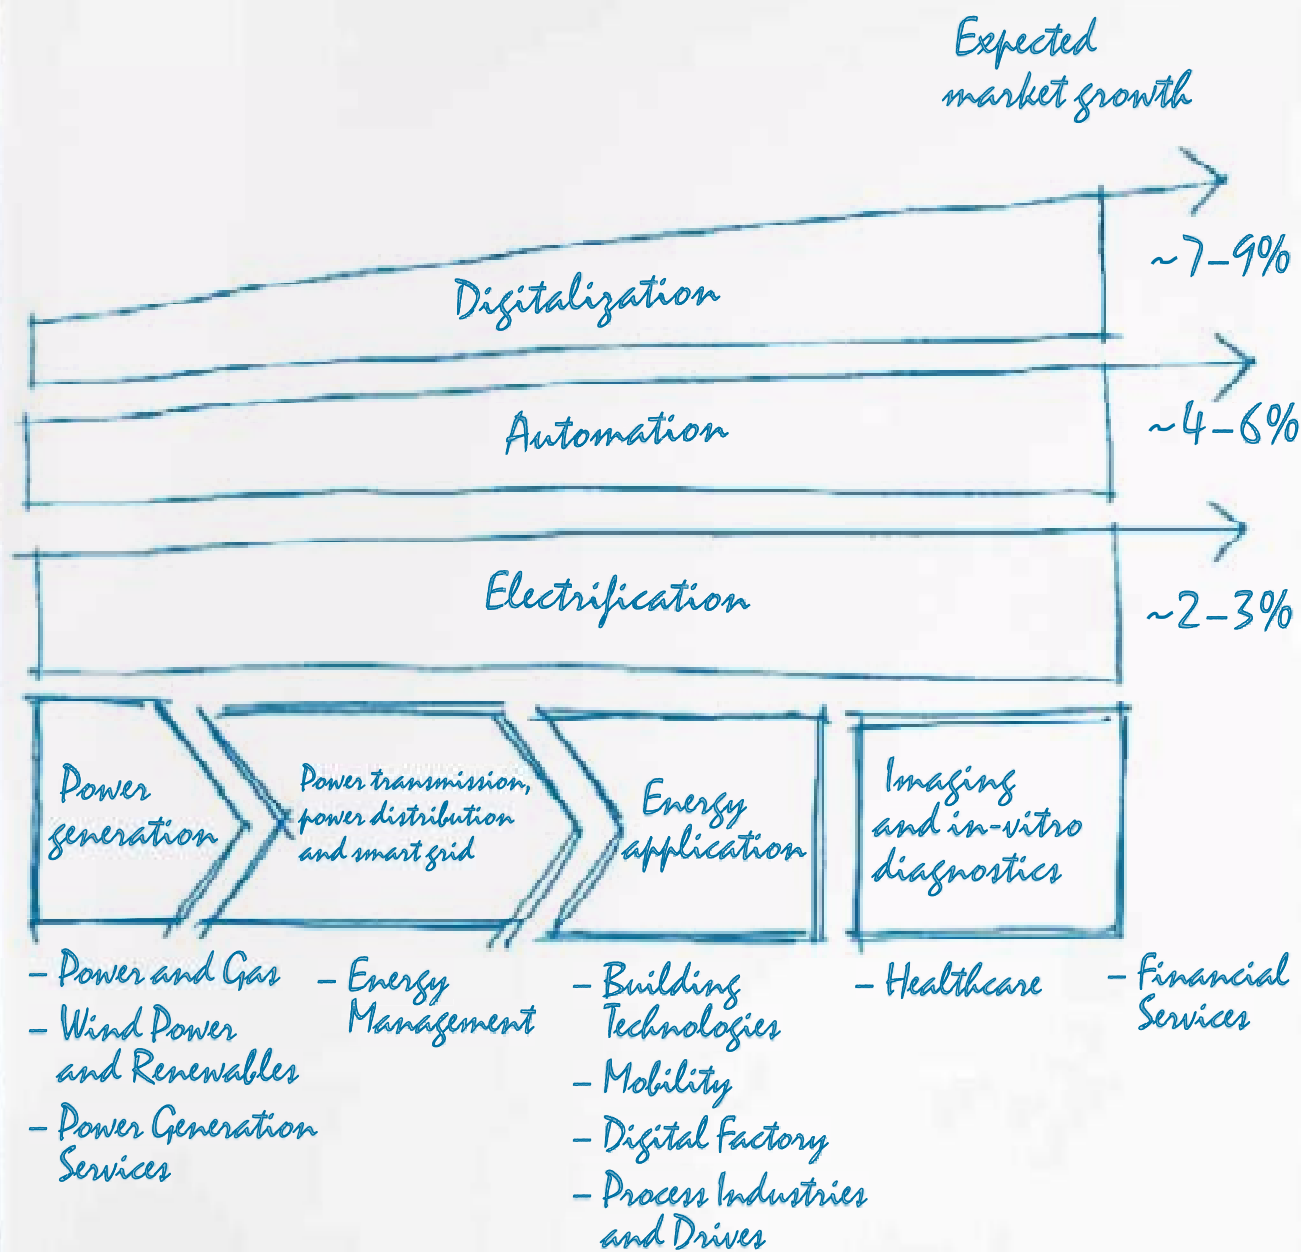 Expected
market growth
~7–9%
Digitalization
~4–6%
Automation
~2–3%
Electrification
Power
generation
Power transmission,
power distribution
and smart grid
Energy
application
Imaging
and in-vitro
diagnostics
– Power and Gas
– Wind Power
and Renewables
– Power Generation
Services
– Energy
Management
– Building
Technologies
– Mobility
– Digital Factory
– Process Industries
and Drives
– Healthcare
– Financial
Services